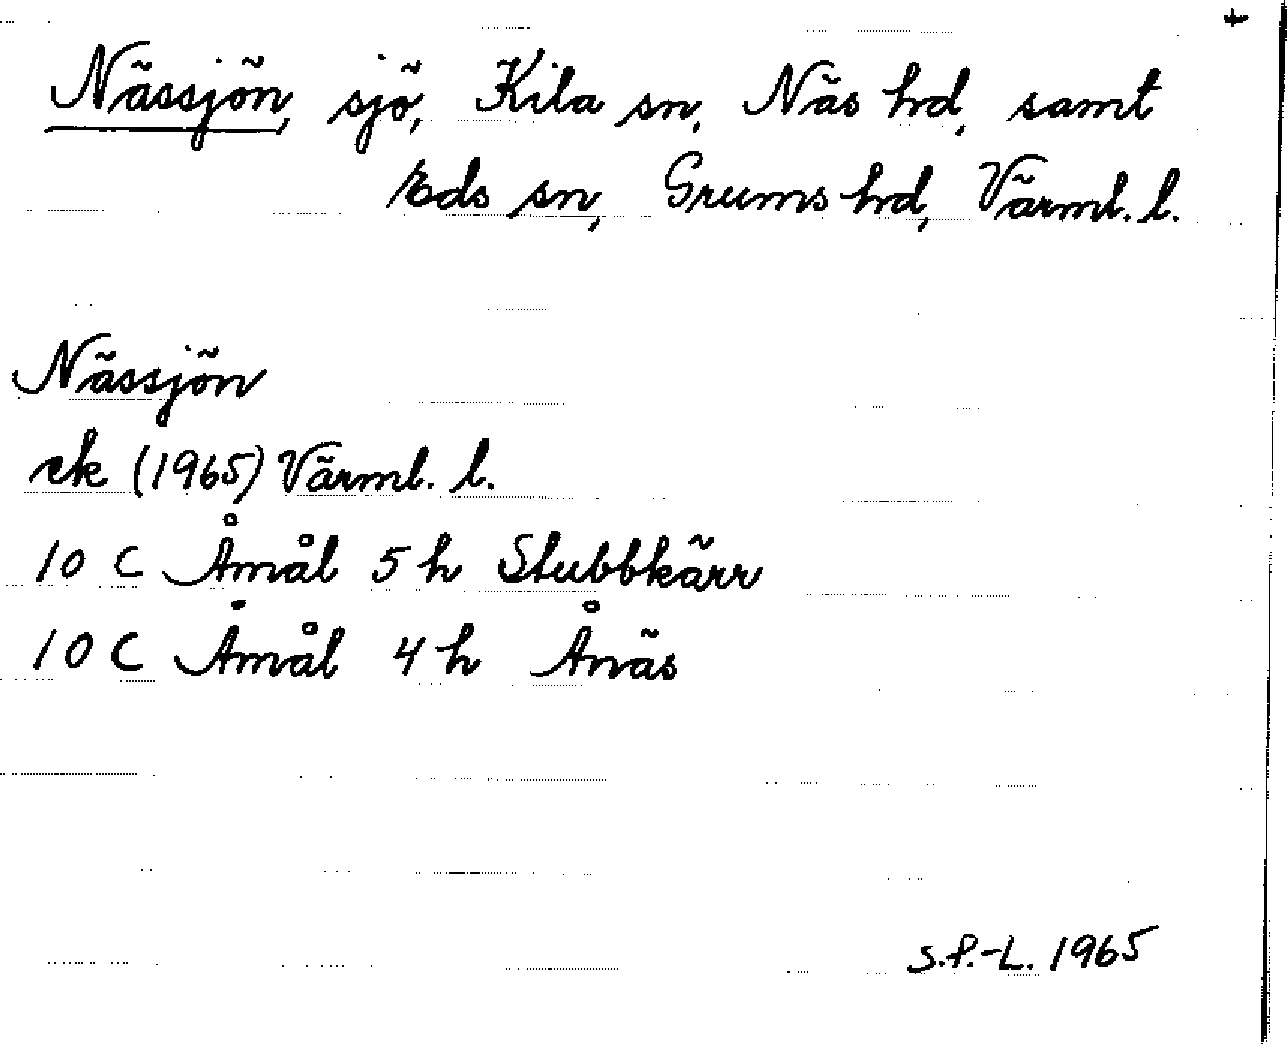 +
Nässjön, sjö, Kila sn, Näs hd, samt
Eds sn, Grums hd, Värml. l.
Nässjön
ek (1965) Värml. l.
10 C Åmål 5 h Stubbkärr
10 C Åmål 4 h Ånäs
S.P.-L. 1965